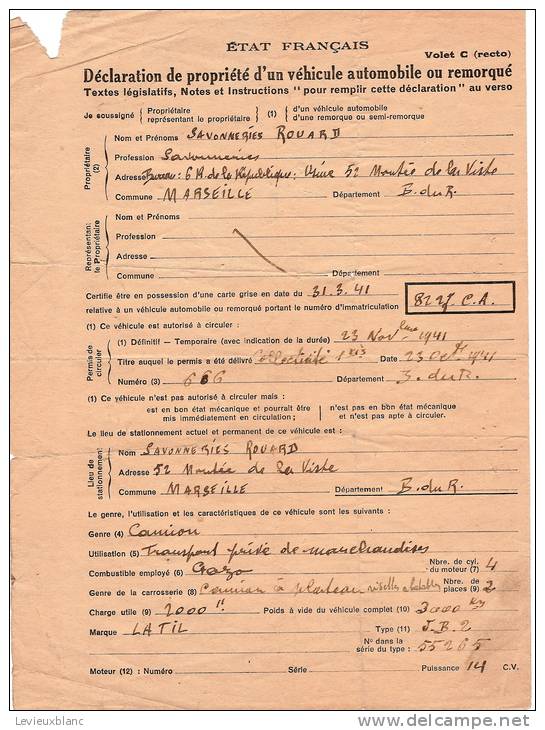 ÉTAT FRANÇAIS
Volet C (recto)
Déclaration de propriété d'un véhicule automobile ou remorqué
Textes législatifs, Notes et Instructions " pour remplir cette déclaration " au verso
Je soussigné { Propriétaire représentant le propriétaire } (1) { d'un véhicule automobile d'une remorque ou semi-remorque
Propriétaire (2)
Nom et Prénoms SAVONNERIES ROUARD
Profession Savonneries
Adresse Bureau : 6 R. de la République : Usine 52 Montée de la Viste
Commune MARSEILLE Département B. du R.
Représentant le Propriétaire
Nom et Prénoms
Profession
Adresse
Commune Département
Certifie être en possession d'une carte grise en date du 31.3.41
relative à un véhicule automobile ou remorqué portant le numéro d'immatriculation C.A.
(1) Ce véhicule est autorisé à circuler :
Permis de circuler
(1) Définitif - Temporaire (avec indication de la durée) 23 Nov 1941
Titre auquel le permis a été délivré Collectivité Date 23 Oct 1941
Numéro (3) 666 Département B. du R.
(1) Ce véhicule n'est pas autorisé à circuler mais :
est en bon état mécanique et pourrait être mis immédiatement en circulation ; } { n'est pas en bon état mécanique et n'est pas apte à circuler.
Le lieu de stationnement actuel et permanent de ce véhicule est :
Lieu de stationnement
Nom SAVONNERIES ROUARD
Adresse 52 Montée de la Viste
Commune MARSEILLE Département B. du R.
Le genre, l'utilisation et les caractéristiques de ce véhicule sont les suivants :
Genre (4) Camion
Utilisation (5) Transport privé de marchandises
Combustible employé (6) Gazo Nbre. de cyl. du moteur (7) 4
Genre de la carrosserie (8) Camion à plateau Nbre. de places (9) 2
Charge utile (9) 2000 " Poids à vide du véhicule complet (10) 3000 Kg
Marque LATIL Type (11) J.B.2
N° dans la série du type : 55265
Moteur (12) : Numéro Série Puissance 14 C.V.
Levieuxblanc
delcampe.net